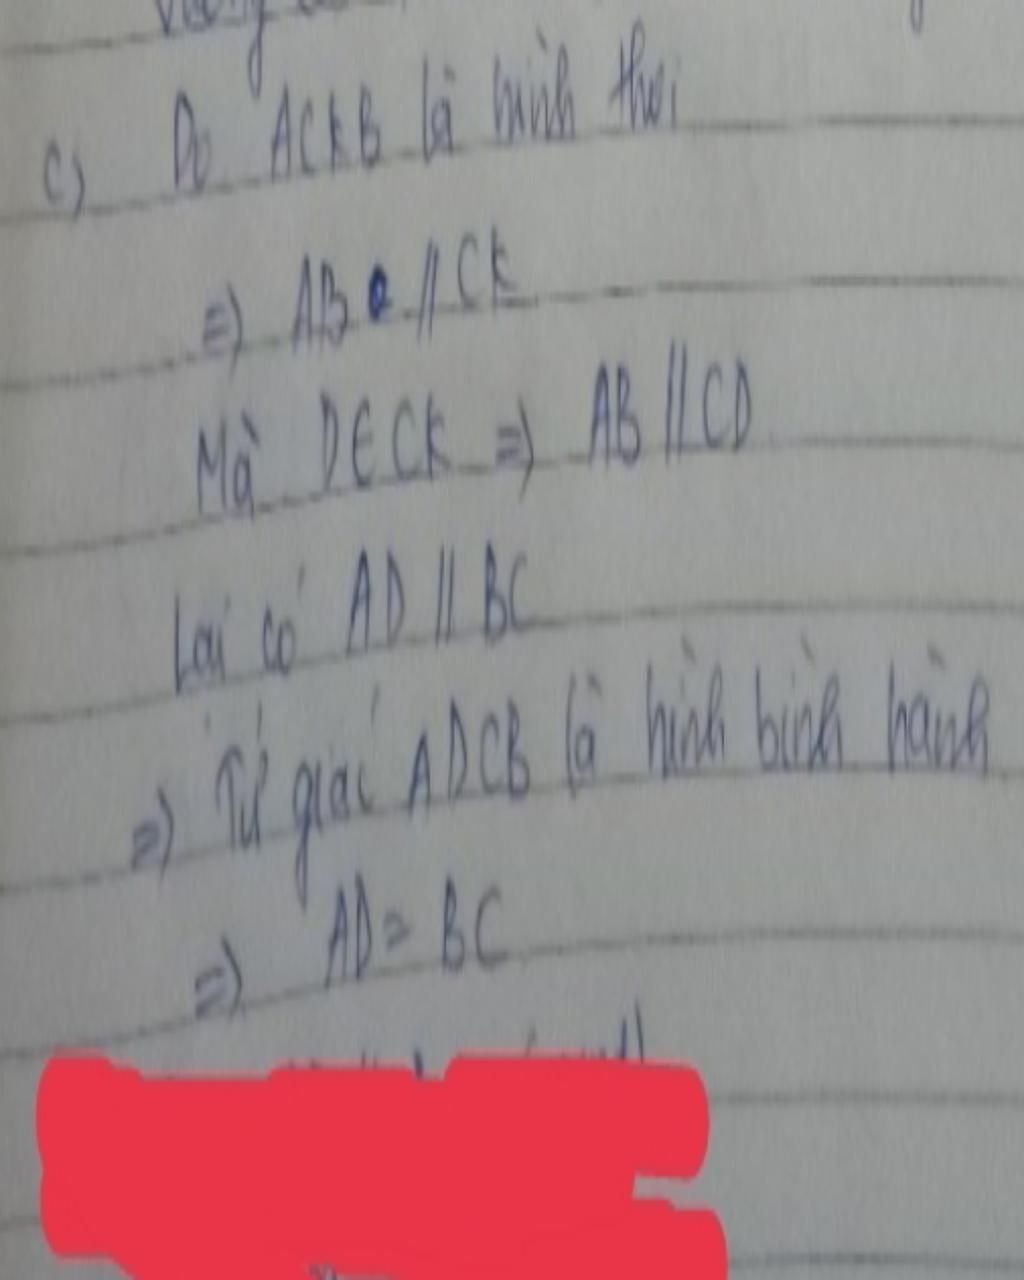 c) Do ACKB là hình thoi
=) AB // CK
Mà D ∈ CK =) AB // CD
Lại có AD // BC
=) Tứ giác ADCB là hình bình hành
=) AD = BC